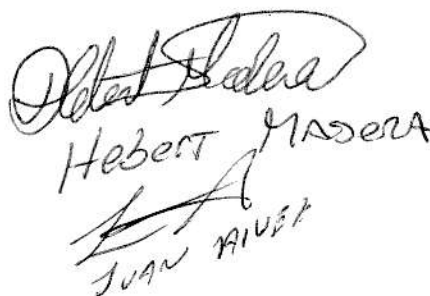 Hebert Madera
Hebert MADERA
JUAN